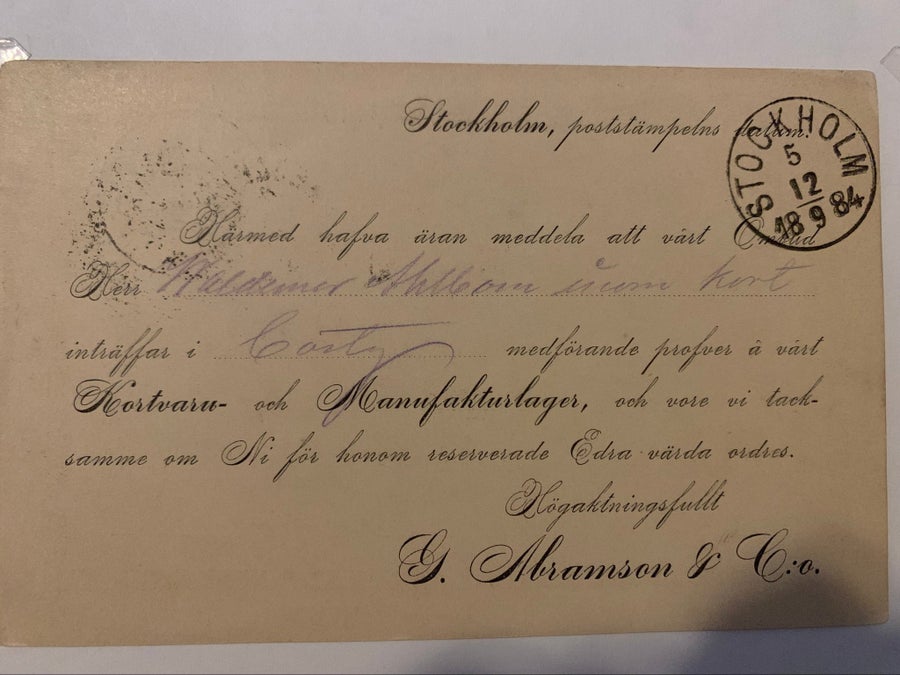 Stockholm, poststämpelns datum.
STOCKHOLM
5
12
18 9 84
Härmed hafva äran meddela att vårt Ombud
Herr Waldemar Ahlbom inom kort
inträffar i medförande profver å vårt
Kortvaru- och Manufakturlager, och vore vi tack-
samme om Ni för honom reserverade Edra värda ordres.
Högaktningsfullt
G. Abramson & C:o.